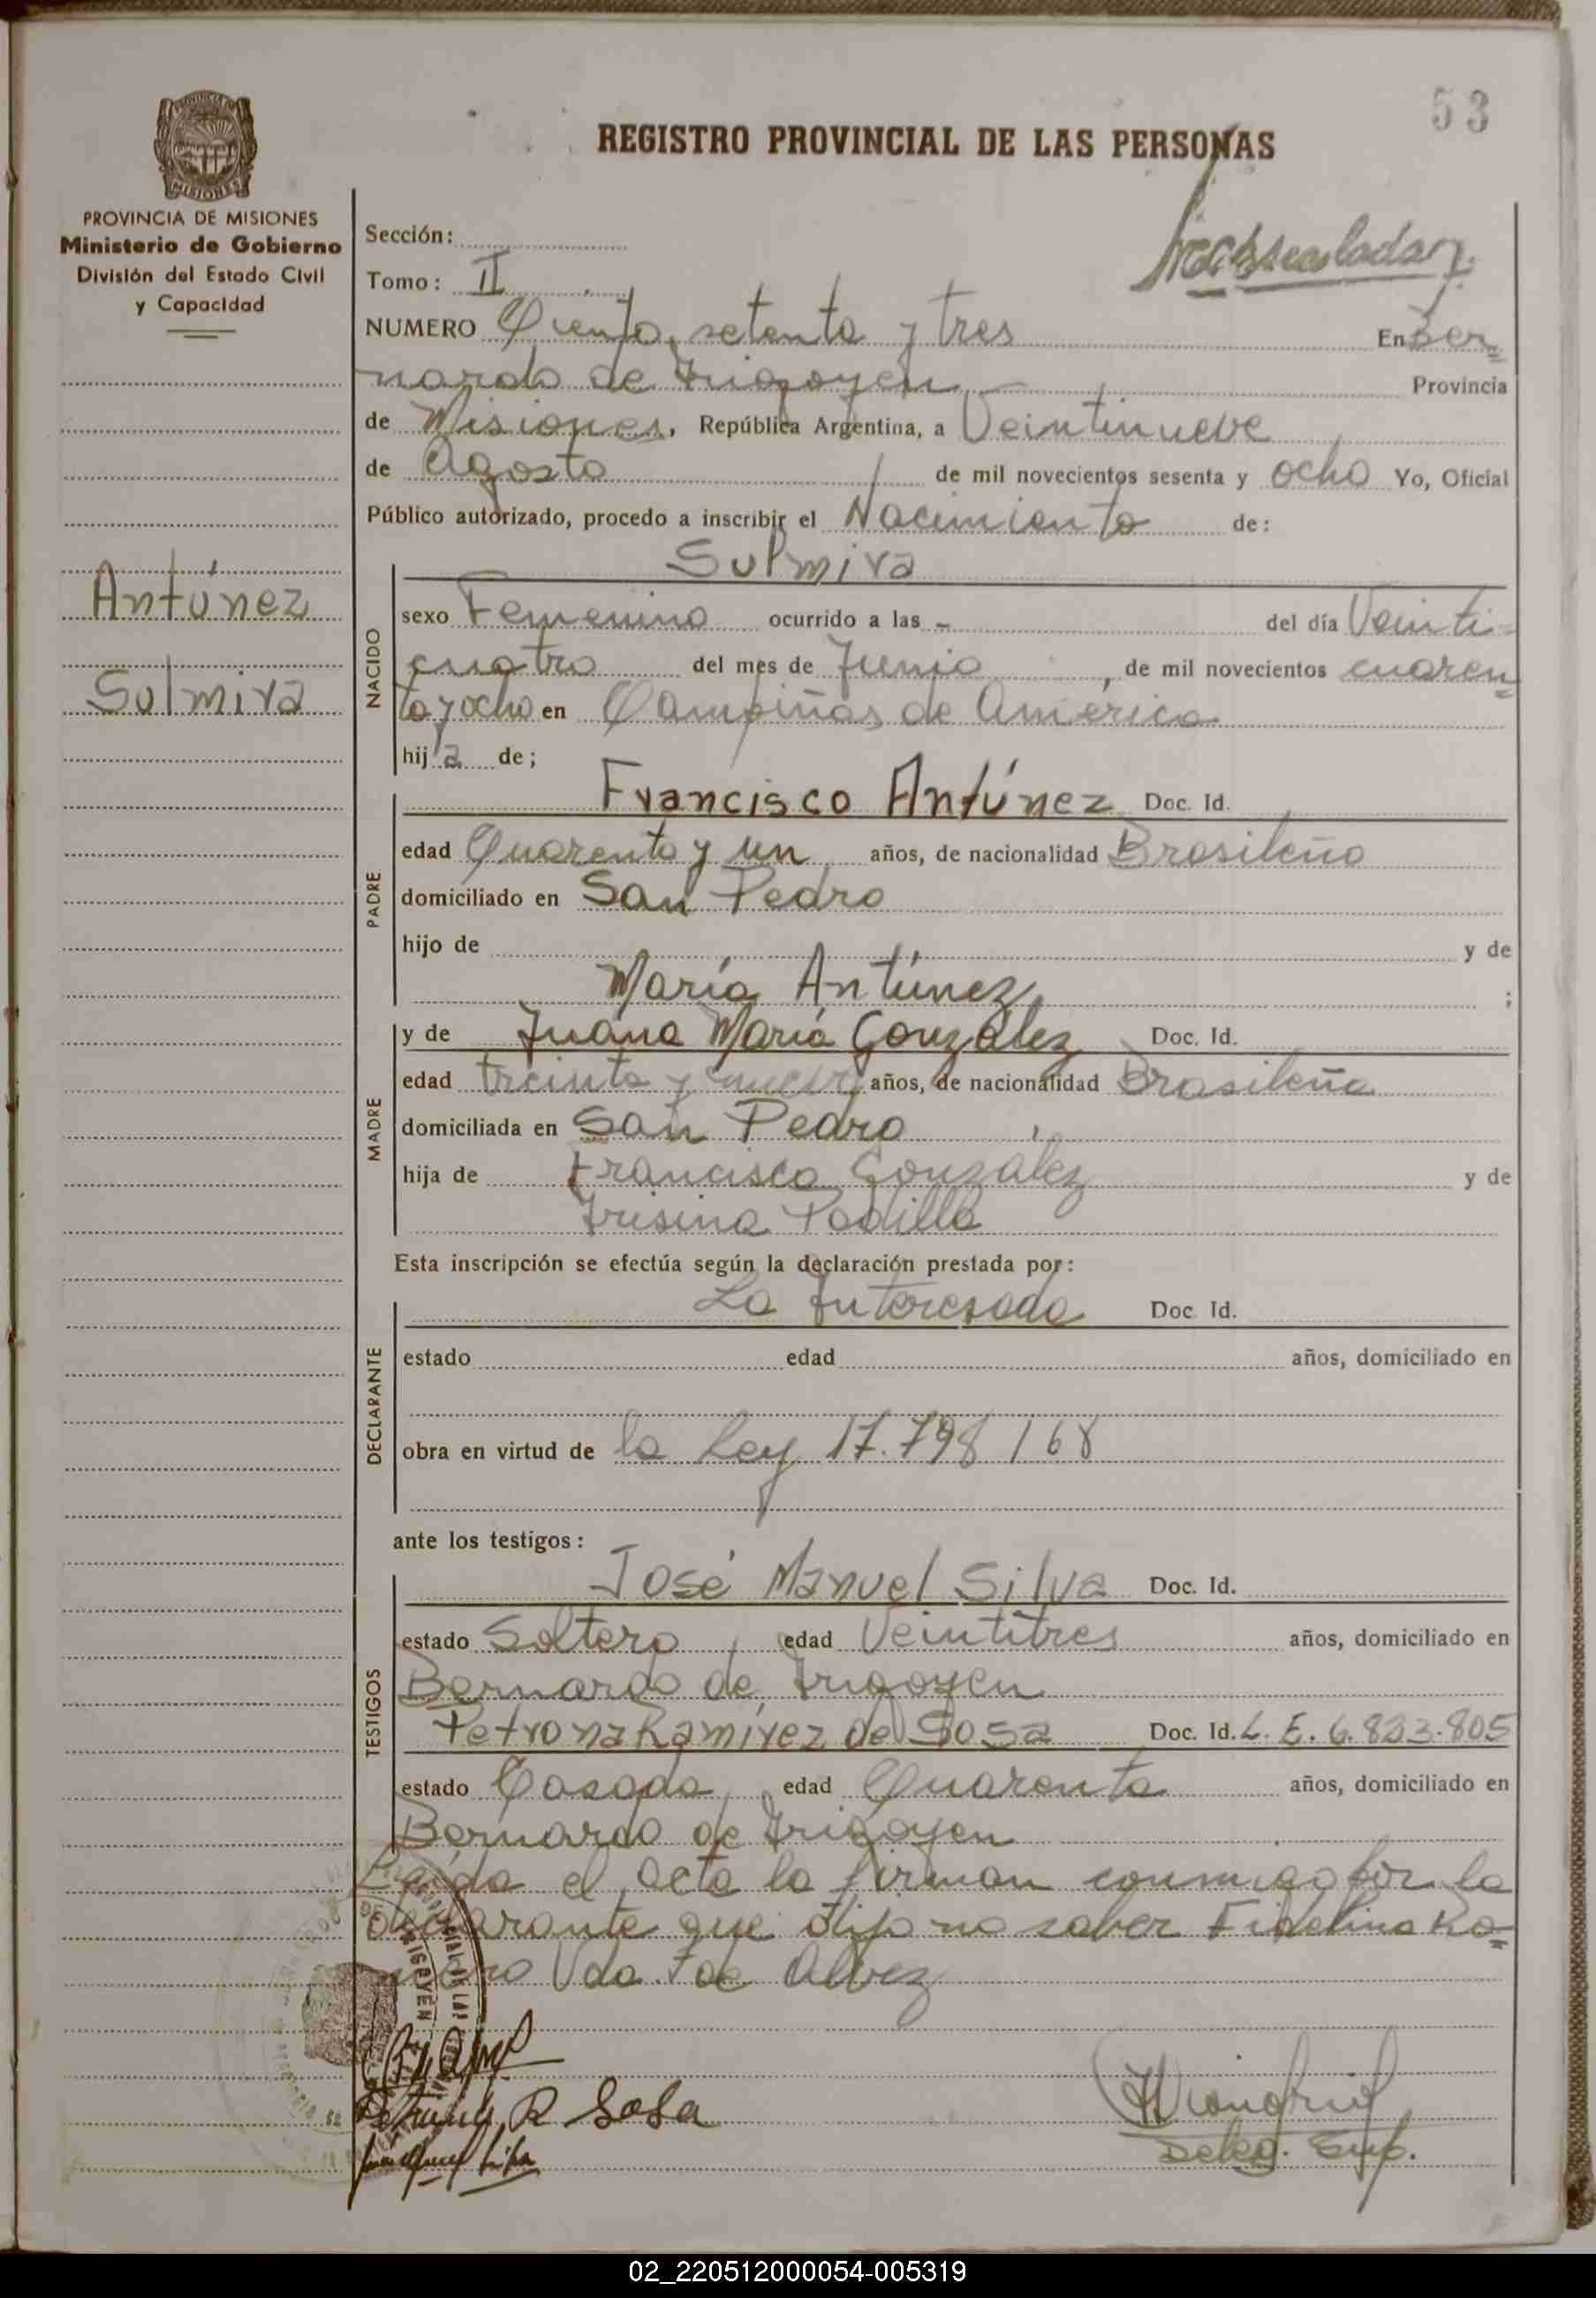 53
REGISTRO PROVINCIAL DE LAS PERSONAS
PROVINCIA DE MISIONES
Ministerio de Gobierno
División del Estado Civil
y Capacidad
Sección:
Tomo: II
NUMERO Ciento, setenta y tres En Ber=
nardo de Irigoyen Provincia
de Misiones, República Argentina, a Veintinueve
de Agosto de mil novecientos sesenta y ocho Yo, Oficial
Público autorizado, procedo a inscribir el Nacimiento de:
Sulmira
Antúnez
Sulmira
NACIDO
sexo Femenino ocurrido a las - del día Veinti-
cuatro del mes de Junio, de mil novecientos cuaren=
ta y ocho en Campiñas de América
hija de;
PADRE
Francisco Antúnez Doc. Id.
edad Cuarenta y un años, de nacionalidad Brasileño
domiciliado en San Pedro
hijo de y de
María Antúnez ;
MADRE
y de Juana María González Doc. Id.
edad treinta y nueve años, de nacionalidad Brasileña
domiciliada en San Pedro
hija de Francisco González y de
Padilla
Esta inscripción se efectúa según la declaración prestada por:
DECLARANTE
La Interesada Doc. Id.
estado edad años, domiciliado en
obra en virtud de la Ley 17.798/68
ante los testigos:
TESTIGOS
José Manuel Silva Doc. Id.
estado Soltero edad Veintitres años, domiciliado en
Bernardo de Irigoyen
Petrona Ramírez de Sosa Doc. Id. L. E. 6.823.805
estado Casada, edad Cuarenta años, domiciliado en
Bernardo de Irigoyen
Leída el acta la firman conmigo por la
declarante que dijo no saber Fidelina Ro=
mero Vda. de Alvez
R Sosa
Deleg. Sup.
02_220512000054-005319